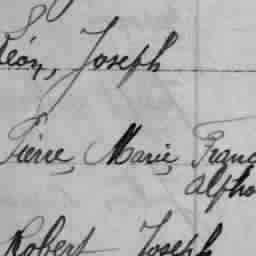 Léon, Joseph
Pierre, Marie, Franc
Alpho
Robert Joseph